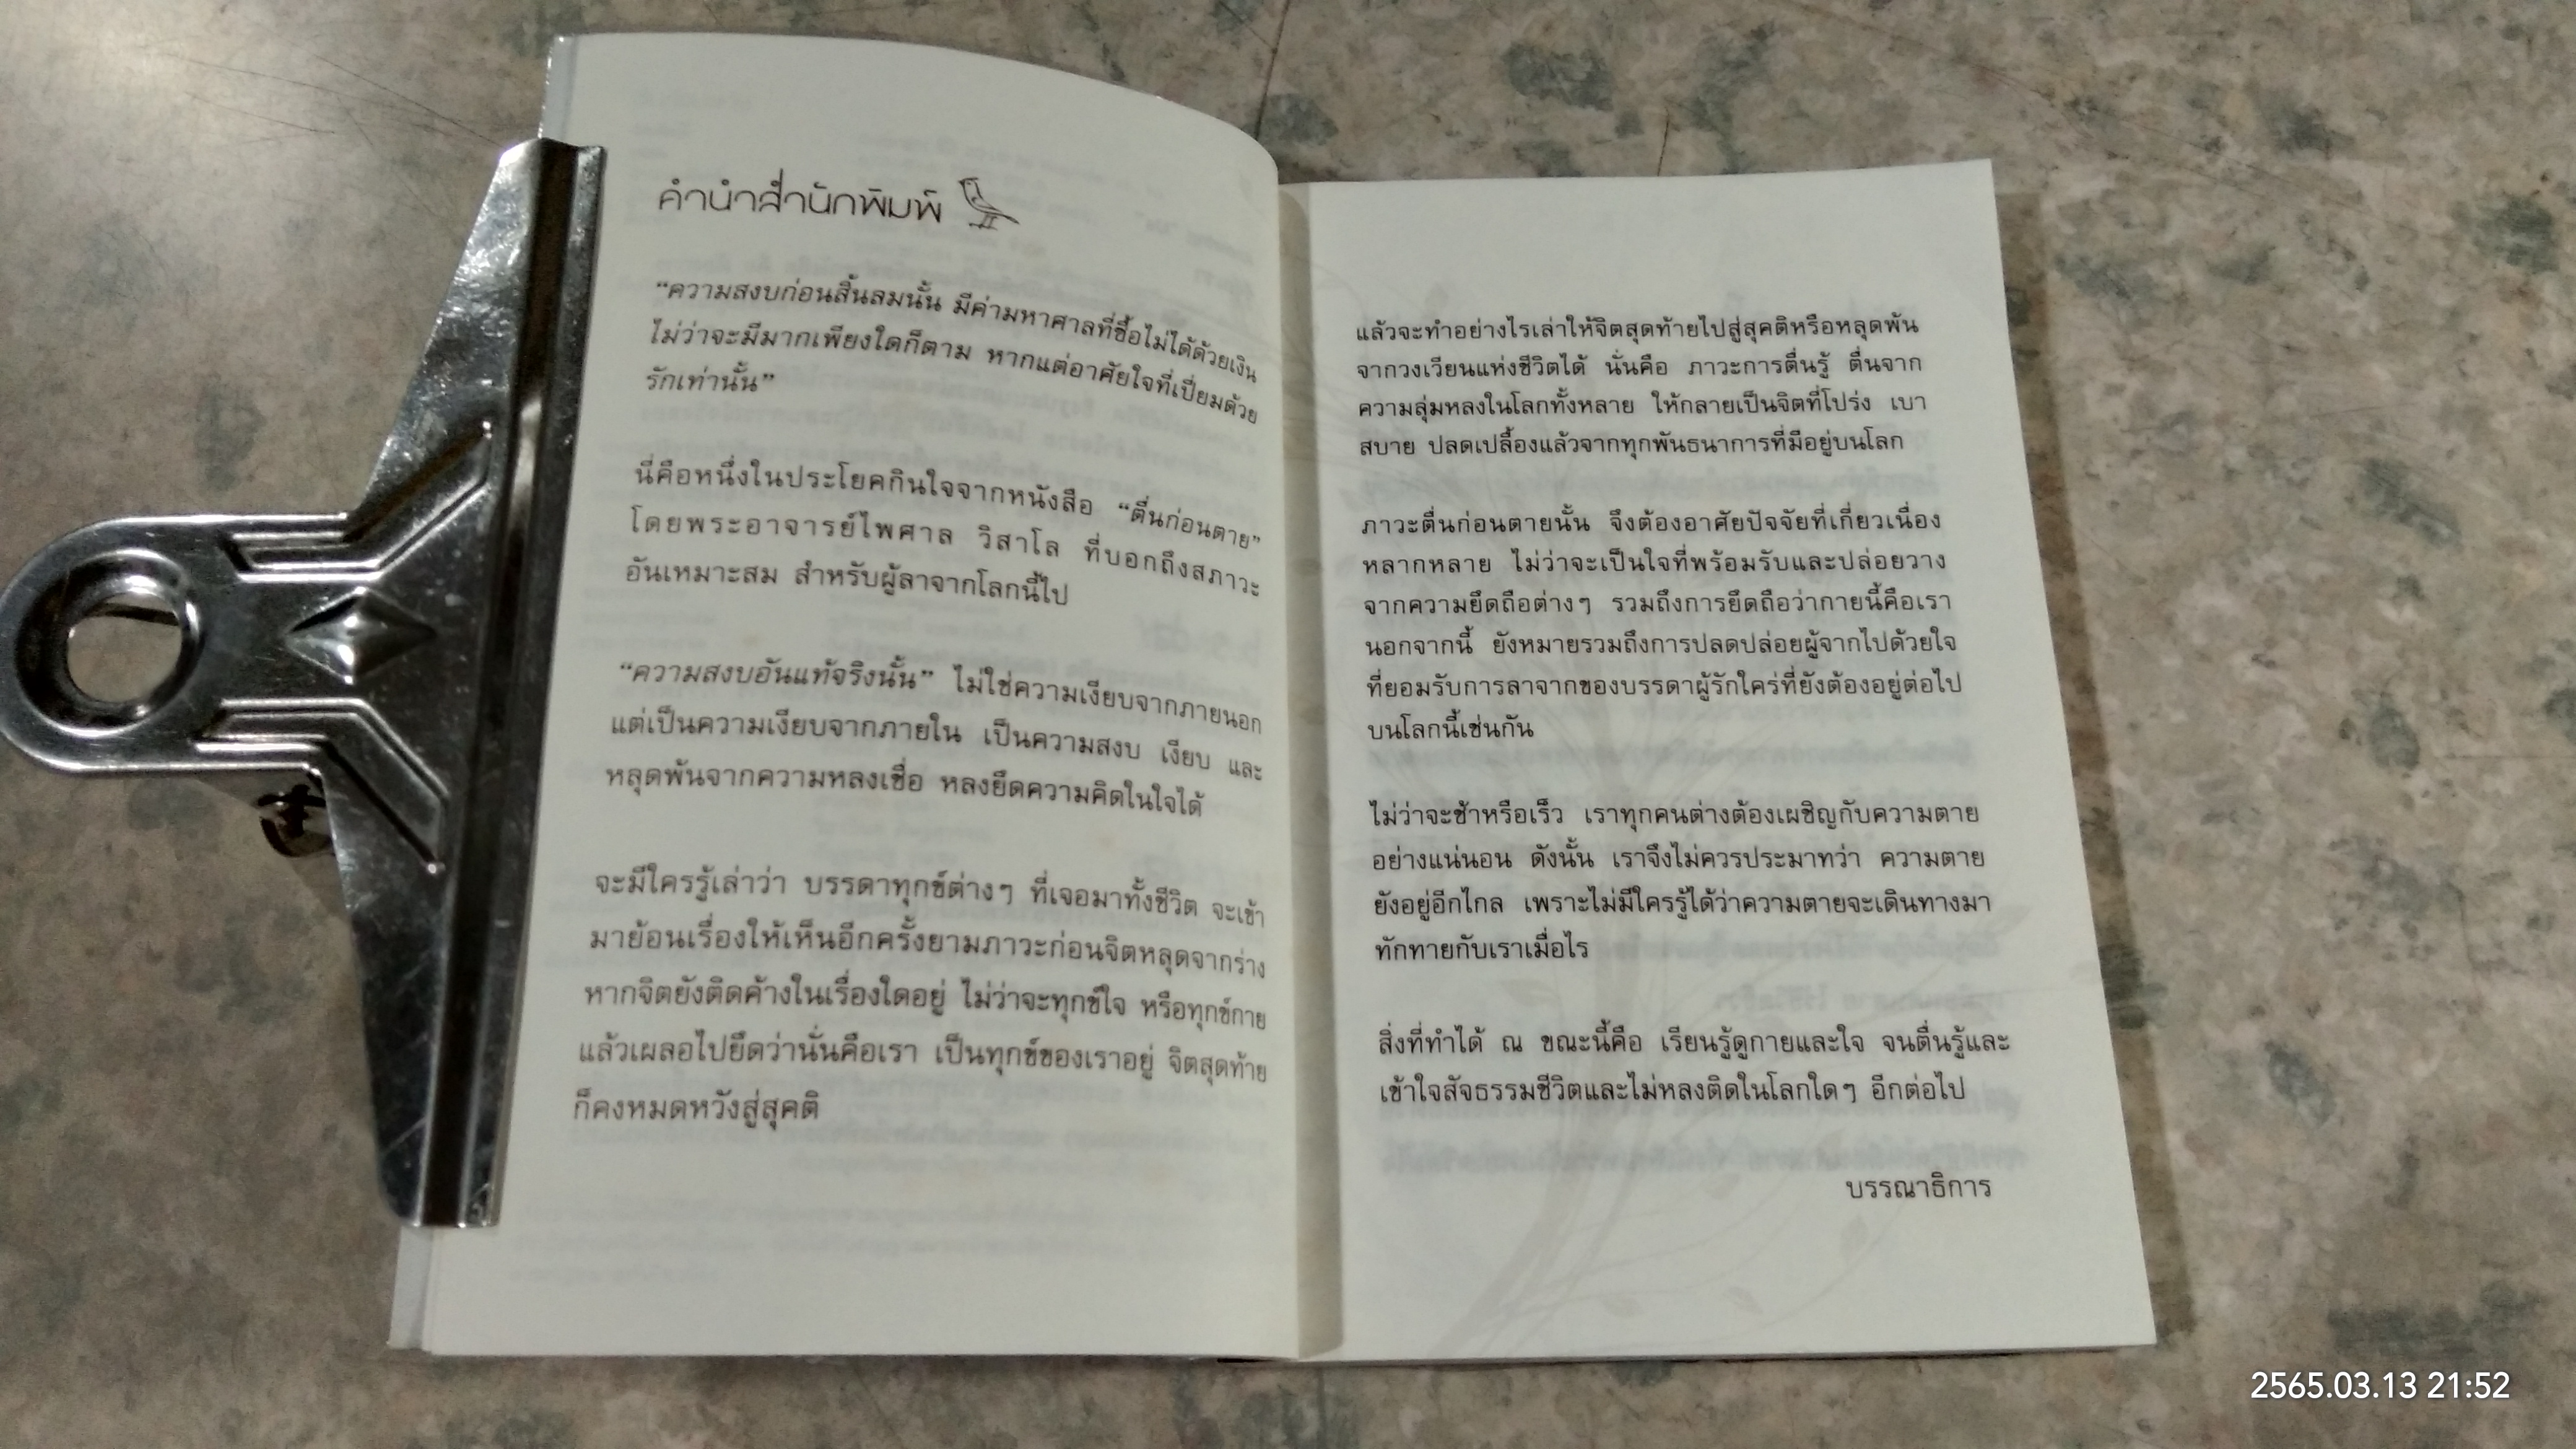 คำนำสำนักพิมพ์
“ความสงบก่อนสิ้นลมนั้น มีค่ามหาศาลที่ซื้อไม่ได้ด้วยเงิน
ไม่ว่าจะมีมากเพียงใดก็ตาม หากแต่อาศัยใจที่เปี่ยมด้วย
รักเท่านั้น”
นี่คือหนึ่งในประโยคกินใจจากหนังสือ “ตื่นก่อนตาย”
โดยพระอาจารย์ไพศาล วิสาโล ที่บอกถึงสภาวะ
อันเหมาะสม สำหรับผู้ลาจากโลกนี้ไป
“ความสงบอันแท้จริงนั้น” ไม่ใช่ความเงียบจากภายนอก
แต่เป็นความเงียบจากภายใน เป็นความสงบ เงียบ และ
หลุดพ้นจากความหลงเชื่อ หลงยึดความคิดในใจได้
จะมีใครรู้เล่าว่า บรรดาทุกข์ต่างๆ ที่เจอมาทั้งชีวิต จะเข้า
มาย้อนเรื่องให้เห็นอีกครั้งยามภาวะก่อนจิตหลุดจากร่าง
หากจิตยังติดค้างในเรื่องใดอยู่ ไม่ว่าจะทุกข์ใจ หรือทุกข์กาย
แล้วเผลอไปยึดว่านั่นคือเรา เป็นทุกข์ของเราอยู่ จิตสุดท้าย
ก็คงหมดหวังสู่สุคติ
แล้วจะทำอย่างไรเล่าให้จิตสุดท้ายไปสู่สุคติหรือหลุดพ้น
จากวงเวียนแห่งชีวิตได้ นั่นคือ ภาวะการตื่นรู้ ตื่นจาก
ความลุ่มหลงในโลกทั้งหลาย ให้กลายเป็นจิตที่โปร่ง เบา
สบาย ปลดเปลื้องแล้วจากทุกพันธนาการที่มีอยู่บนโลก
ภาวะตื่นก่อนตายนั้น จึงต้องอาศัยปัจจัยที่เกี่ยวเนื่อง
หลากหลาย ไม่ว่าจะเป็นใจที่พร้อมรับและปล่อยวาง
จากความยึดถือต่างๆ รวมถึงการยึดถือว่ากายนี้คือเรา
นอกจากนี้ ยังหมายรวมถึงการปลดปล่อยผู้จากไปด้วยใจ
ที่ยอมรับการลาจากของบรรดาผู้รักใคร่ที่ยังต้องอยู่ต่อไป
บนโลกนี้เช่นกัน
ไม่ว่าจะช้าหรือเร็ว เราทุกคนต่างต้องเผชิญกับความตาย
อย่างแน่นอน ดังนั้น เราจึงไม่ควรประมาทว่า ความตาย
ยังอยู่อีกไกล เพราะไม่มีใครรู้ได้ว่าความตายจะเดินทางมา
ทักทายกับเราเมื่อไร
สิ่งที่ทำได้ ณ ขณะนี้คือ เรียนรู้ดูกายและใจ จนตื่นรู้และ
เข้าใจสัจธรรมชีวิตและไม่หลงติดในโลกใดๆ อีกต่อไป
บรรณาธิการ
2565.03.13 21:52